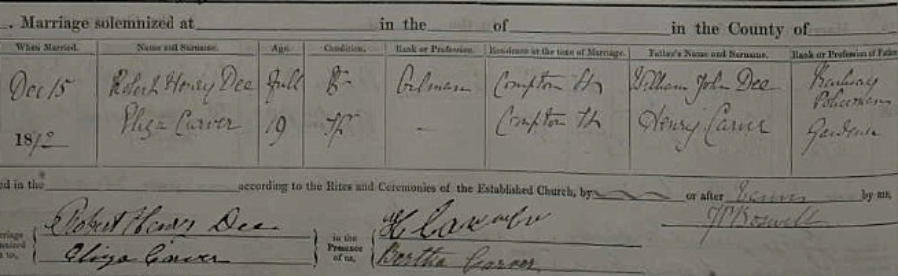 . Marriage solemnized at in the of in the County of
When Married. Name and Surname. Age. Condition. Rank or Profession. Residence at the time of Marriage. Father's Name and Surname. Rank or Profession of Father
Dec 15 Robert Henry Dee full Oilman Compton St William John Dee Railway Policeman
18 Eliza Carver 19 — Compton St Henry Carver Gardener
ed in the according to the Rites and Ceremonies of the Established Church, by or after Banns by me,
Robert Henry Dee
Boswell
rriage in the
nized Presence
n us, of us,
Eliza Carver Bertha Carver